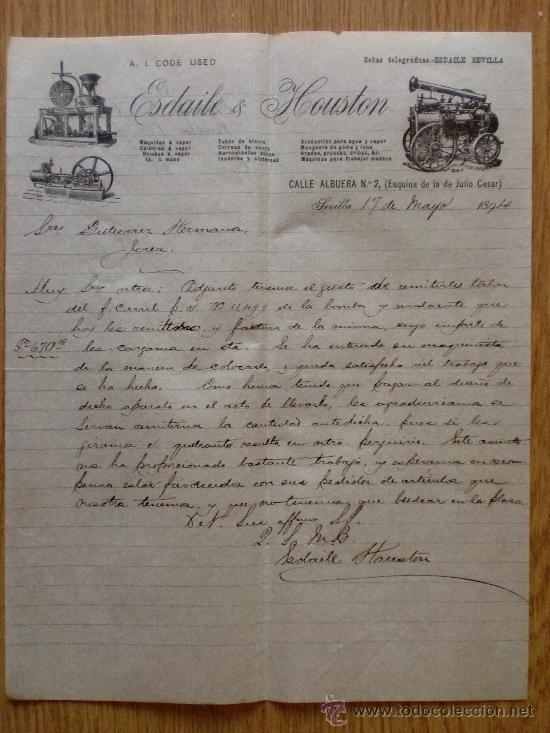 A. I. CODE USED
Señas telegráficas.-ESDAILE SEVILLA
Esdaile & Houston
Máquinas á vapor
Calderas á vapor
Bombas á vapor
Id. á mano
Tubos de hierro
Correas de cuero
Herramientas
Inodoros y cisternas
Accesorios para agua y vapor
Mangueras de goma y lona
Arados, prensas, cribas, &c.
Máquinas para trabajar madera
CALLE ALBUERA N.º 2, (Esquina de la de Julio Cesar)
Sevilla 17 de Mayo 1894
Sres Gutierrez Hermanos,
Jerez.
Muy Sres ntros: Adjunto tenemos el gusto de remitirles talon
del f. carril p. v. Nº 11,499 de la bomba y que
hoy les remitimos, y factura de la misma, cuyo importe de
Ps 670 les cargamos en cta. Se ha enterado su maquinista
de la manera de colocarla, y queda satisfecho del trabajo que
se ha hecho. Como hemos tenido que pagar al dueño de
dicho aparato en el acto de llevarlo, les agradeceriamos se
sirvan remitirnos la cantidad antedicha, pues si les
giramos el quebranto resulta en ntro. perjuicio. Este asunto
nos ha proporcionado bastante trabajo, y esperamos en recom
pensa estar favorecidos con sus pedidos de articulos que
nosotros tenemos, y que no tenemos que buscar en la plaza.
De Vs. sus affmos S.S.
Q. S. M. B.
Esdaile Houston
todocoleccion
www.todocoleccion.net